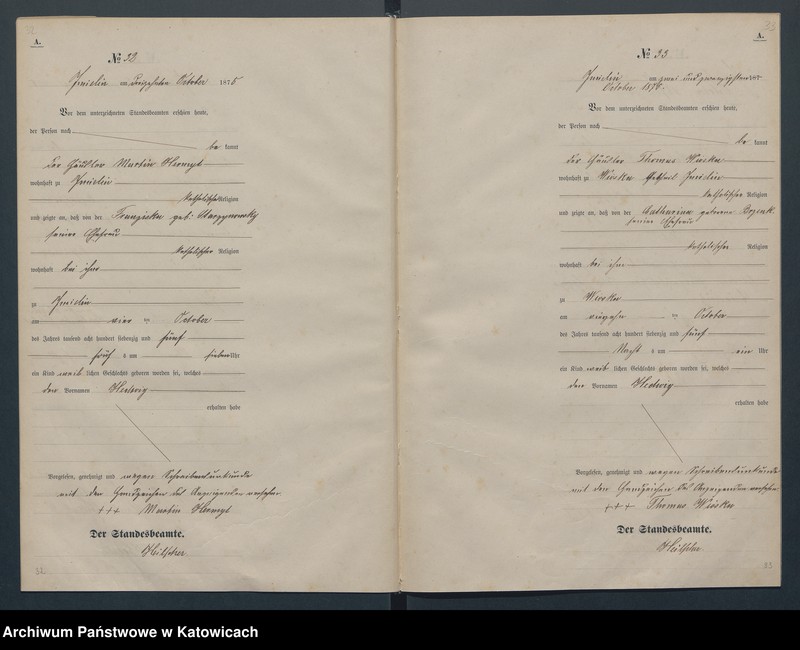 A.
№ 32.
Imielin am dreizehnten October 1875
Vor dem unterzeichneten Standesbeamten erschien heute,
der Person nach
be kannt
der Häusler Martin
wohnhaft zu Imielin
katholischer Religion
und zeigte an, daß von der Franziska geb:
seiner Ehefrau
katholischer Religion
wohnhaft bei ihm
zu Imielin
am vier ten October
des Jahres tausend acht hundert siebenzig und fünf
früh s um sieben Uhr
ein Kind weib lichen Geschlechts geboren worden sei, welches
den Vornamen Hedwig
erhalten habe
Vorgelesen, genehmigt und wegen Schreibensunkunde
mit den Handzeichen des Anzeigenden versehen
+++ Martin
Der Standesbeamte.
32.
33
A.
№ 33
Imielin am zwei und zwanzigsten 187
October 1875.
Vor dem unterzeichneten Standesbeamten erschien heute,
der Person nach
be kannt
der Häusler Thomas
wohnhaft zu Imielin
katholischer Religion
und zeigte an, daß von der Catharina geborene
seiner Ehefrau
katholischer Religion
wohnhaft bei ihm
zu
am ten October
des Jahres tausend acht hundert siebenzig und fünf
Nacht s um ein Uhr
ein Kind weib lichen Geschlechts geboren worden sei, welches
den Vornamen Hedwig
erhalten habe
Vorgelesen, genehmigt und wegen Schreibensunkunde
mit den Handzeichen des Anzeigenden versehen
+++ Thomas
Der Standesbeamte.
33
Archiwum Państwowe w Katowicach